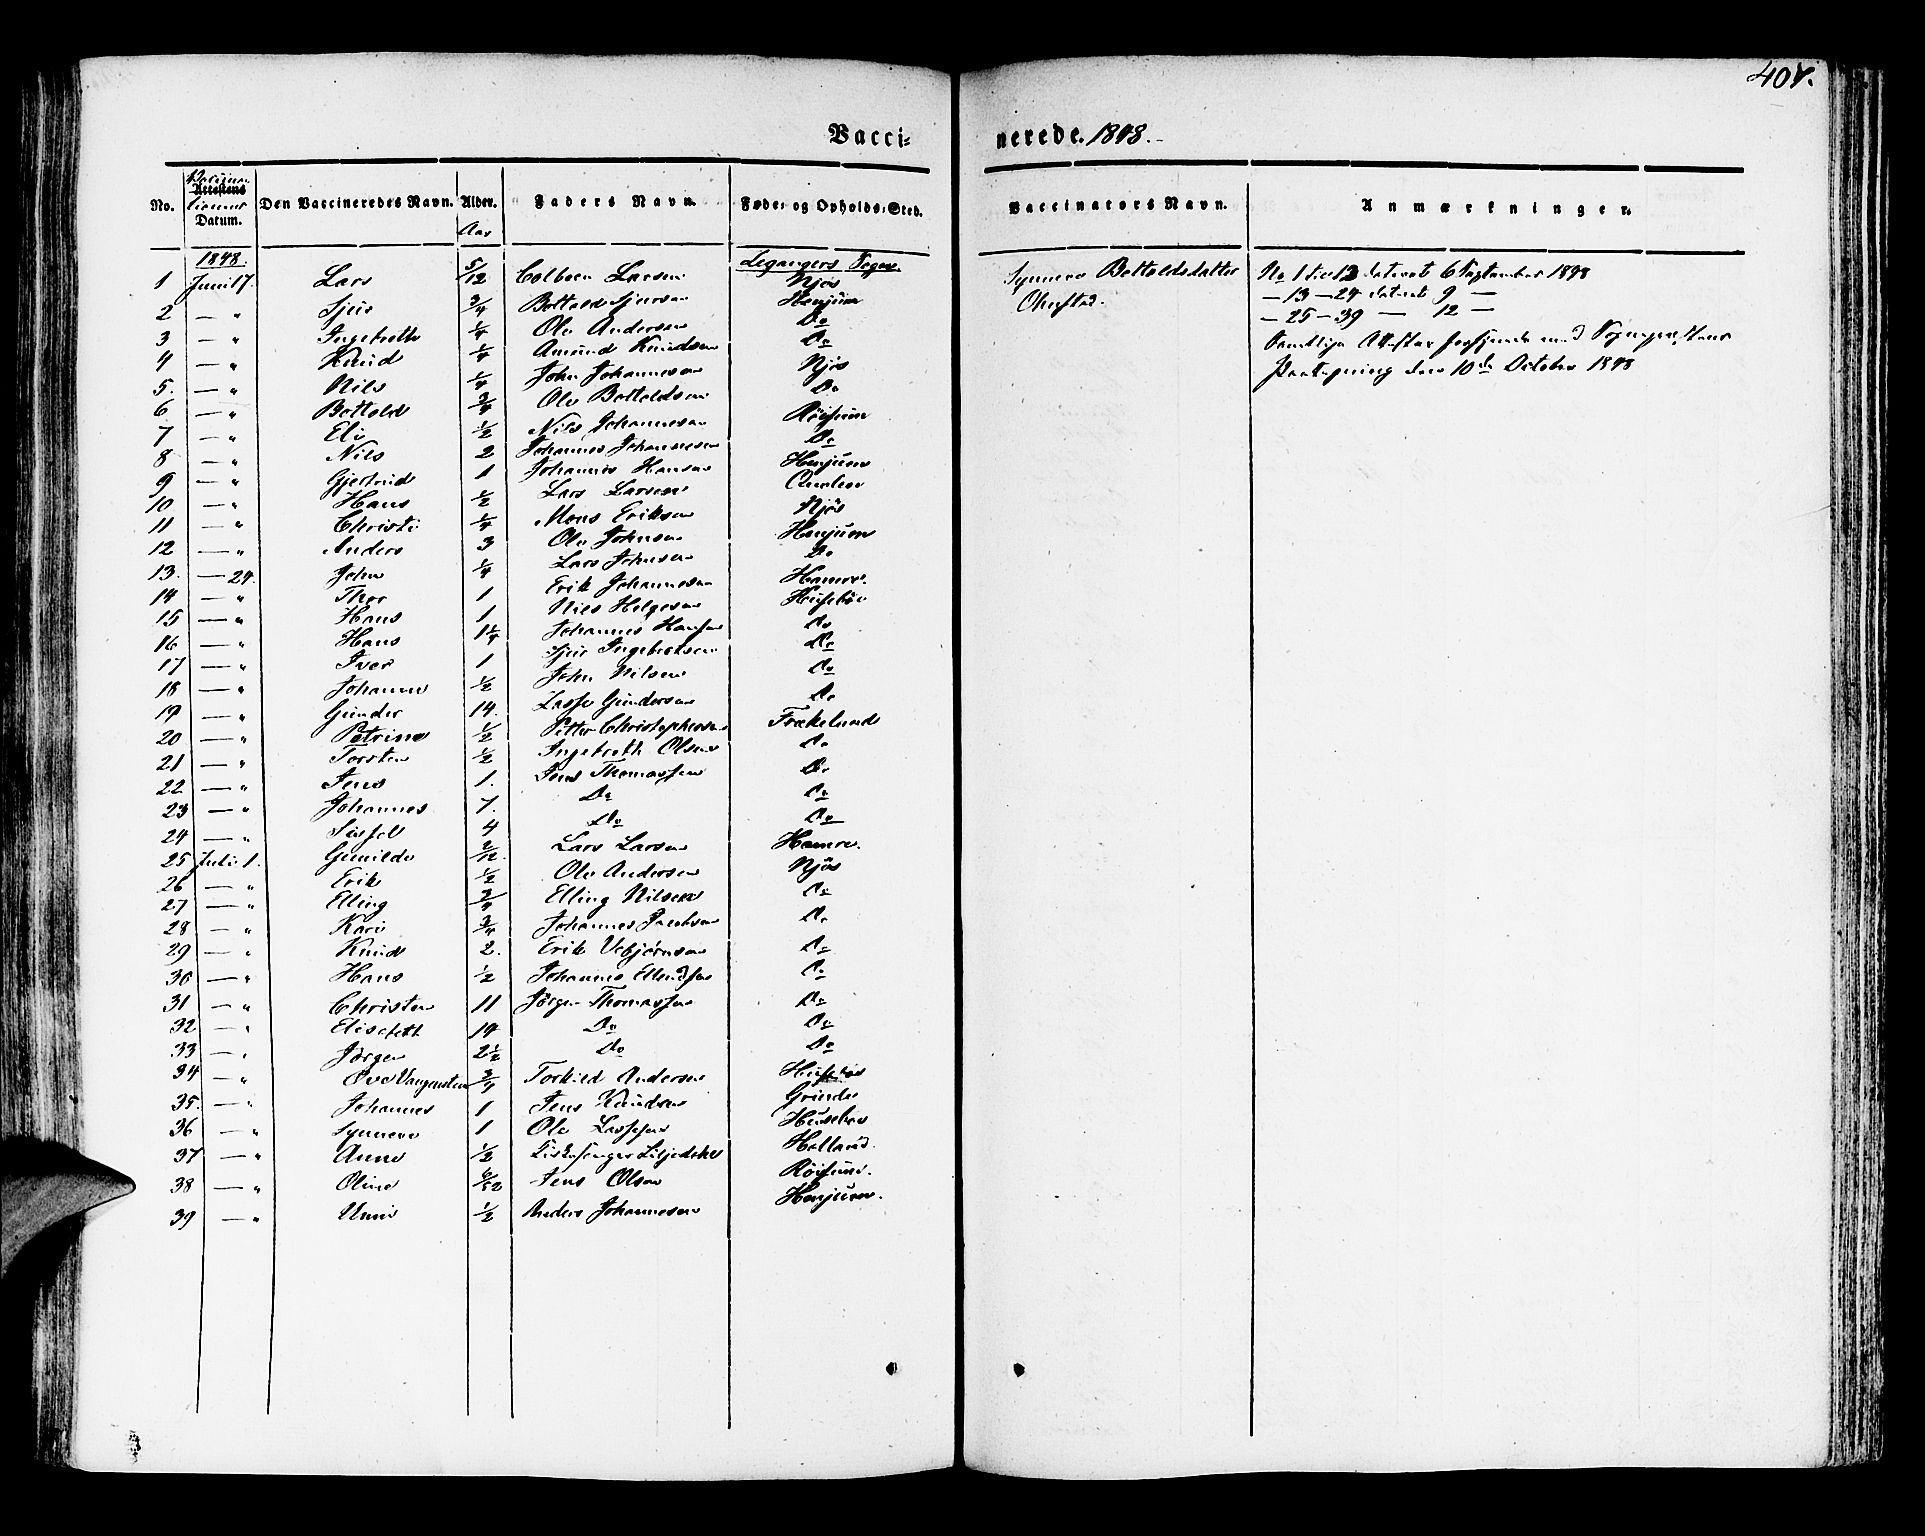 407.
Vacci-
nerede. 1848.
No. Attestens Datum. Den Vaccineredes Navn. Alder. Faders Navn. Føde- og Opholds-Sted. Vaccinators Navn. Anmærkninger.
Aar
1848. Leganger Sogn.
1 Juni 17. Lars 5/12 Colbeen Larsen Njøs
2 — " Sjur 3/4 Bottold Sjursen Henjum
3 — " Ingebreth 1/4 Ole Andersen Do
4 — " Knud 1/4 Amund Knudsen Do
5. — " Nils 1/4 John Johannesen Njøs
6 — " Bottold 3/4 Ole Bottoldsen Do
7 — " Eli 1/2 Nils Johannesen Röisum
8 — " Nils 2 Johannes Johannesen Do
9 — " Gjertrud 1 Johannes Hansen Henjum
10 — " Hans 1/2 Lars Larsen
11 — " Christi 1/4 Mons Eriksen Njøs
12 — " Anders 3 Ole Johnsen Henjum
13. — 24. John 1/4 Lars Johnsen Do
14 — " Thor 1 Erik Johannesen Hamre.
15 — " Hans 1 Nils Helgesen Husebøe
16 — " Hans 1 1/4 Johannes Hansen Do
17 — " Iver 1 Sjur Ingebrethsen Do
18 — " Johanne 1/2 John Nilsen Do
19 — " Gunder 14. Lasse Gundersen Do
20 — " Petrine 1/2 Petter Christophersen Frækelund
21 — " Torsten 1/2 Ingebreth Olsen Do
22 — " Jens 1. Jens Thomassen Do
23 — " Johannes 7. Do Do
24 — " Sissel 4 Do Do
25 Juli 1. Gunilde 2/12. Lars Larsen Hamre.
26 — " Erik 1/2 Ole Andersen Njøs
27 — " Elling 3/4 Elling Nilsen Do
28 — " Kari 3/4 Johannes Jacobsen Do
29 — " Knud 2. Erik Vebjørnsen Do
30 — " Hans 1/2 Johannes Ellendsen Do
31 — " Christen 11 Jørgen Thomassen Do
32 — " Elisabeth 14 Do Do
33 — " Jørgen 2 1/2 Do Do
34 — " Ove 3/4 Torkild Andersen Husebøe
35. — " Johannes 1 Jens Knudsen Grinde
36 — " Synneve 1 Ole Lassesen Husebøe
37 — " Anne 1/2
38 — " Oline 6/12 Jens Olsen Röisum.
39 — " Unni 1/2 Anders Johannesen Henjum.
Synneve Bottoldsdatter
Ohnstad.
No 1 til 12 dateret 6 September 1848
— 13 — 24 dateret 9 —
— 25 — 39 — 12 —
Samtlige Attester forsynede med Sognepræstens
Paategning den 10de October 1848